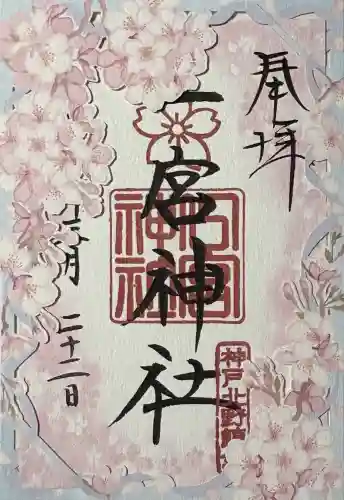 奉拝
一宮神社
一宮神社
神戸北野戸
三月二十二日